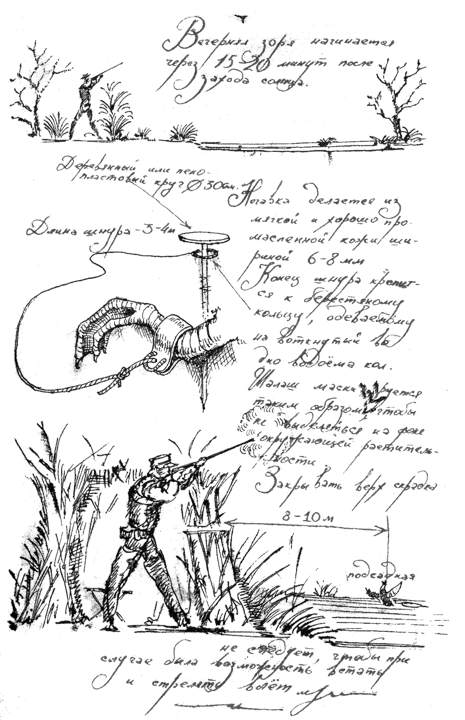 Вечерняя зоря начинается
через 15-20 минут после
захода солнца.
Деревянный или пено-
пластовый круг Ø 30см.
Длина шнура - 3-4м
Ногавка делается из
мягкой и хорошо про-
масленной кожи ши-
риной 6-8 мм
Конец шнура крепит-
ся к берестяному
кольцу, одеваемому
на воткнутый во
дно водоёма кол.
Шалаш маскируется
таким образом, чтобы
не выделяться на фоне
окружающей раститель-
ности
Закрывать верх скрадка
8-10 м
подсадная
не следует, чтобы при
случае была возможность встать
и стрелять влёт